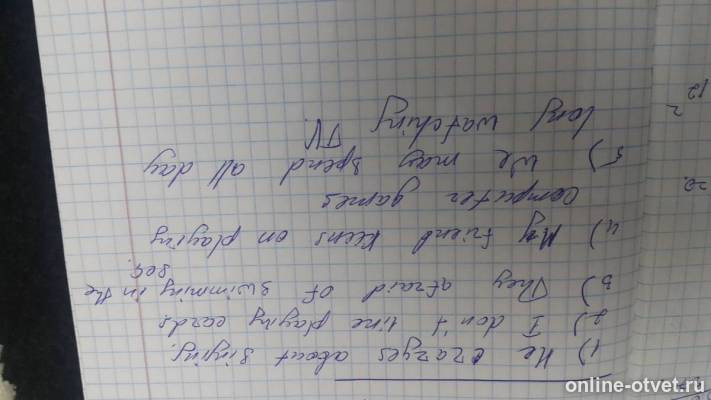 1) He crazyes about singing.
2) I don't like playing cards
3) They afraid of swimming in the
sea.
4) My friend keens on playing
computer games
5) We may spend all day
long watching
TV.
20.
2
12
online-otvet.ru